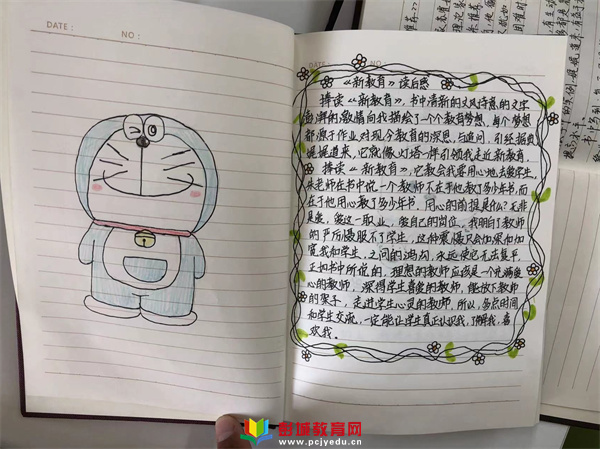 DATE: NO:
NO:
《新教育》读后感
捧读《新教育》,书中清新的文风诗意的文字
的激情向我描绘了一个个教育梦想,每个梦想
都源于作业对现今教育的深思与追问,引经据典
娓娓道来,它就像灯塔一样引领我走近新教育。
捧读《新教育》,它教会我要用心地去爱学生,
朱老师在书中说,一个教师不在于他教了多少年书,而
在于他用心教了多少年书,用心的前提是什么?无非
是爱,爱这一职业,爱自己的岗位,我明白了教师
的严厉慑服不了学生,这种震慑只会加深和加
宽我和学生之间的鸿沟,永远使它无法复平,
正如书中所说的,理想的教师应该是一个充满爱
心的教师,深得学生喜爱的教师,能放下教师
的架子,走进学生心灵的教师,所以,多花时间
和学生交流,一定能让学生真正认识我,了解我,喜
欢我。
创城教育网
www.pcjyedu.cn